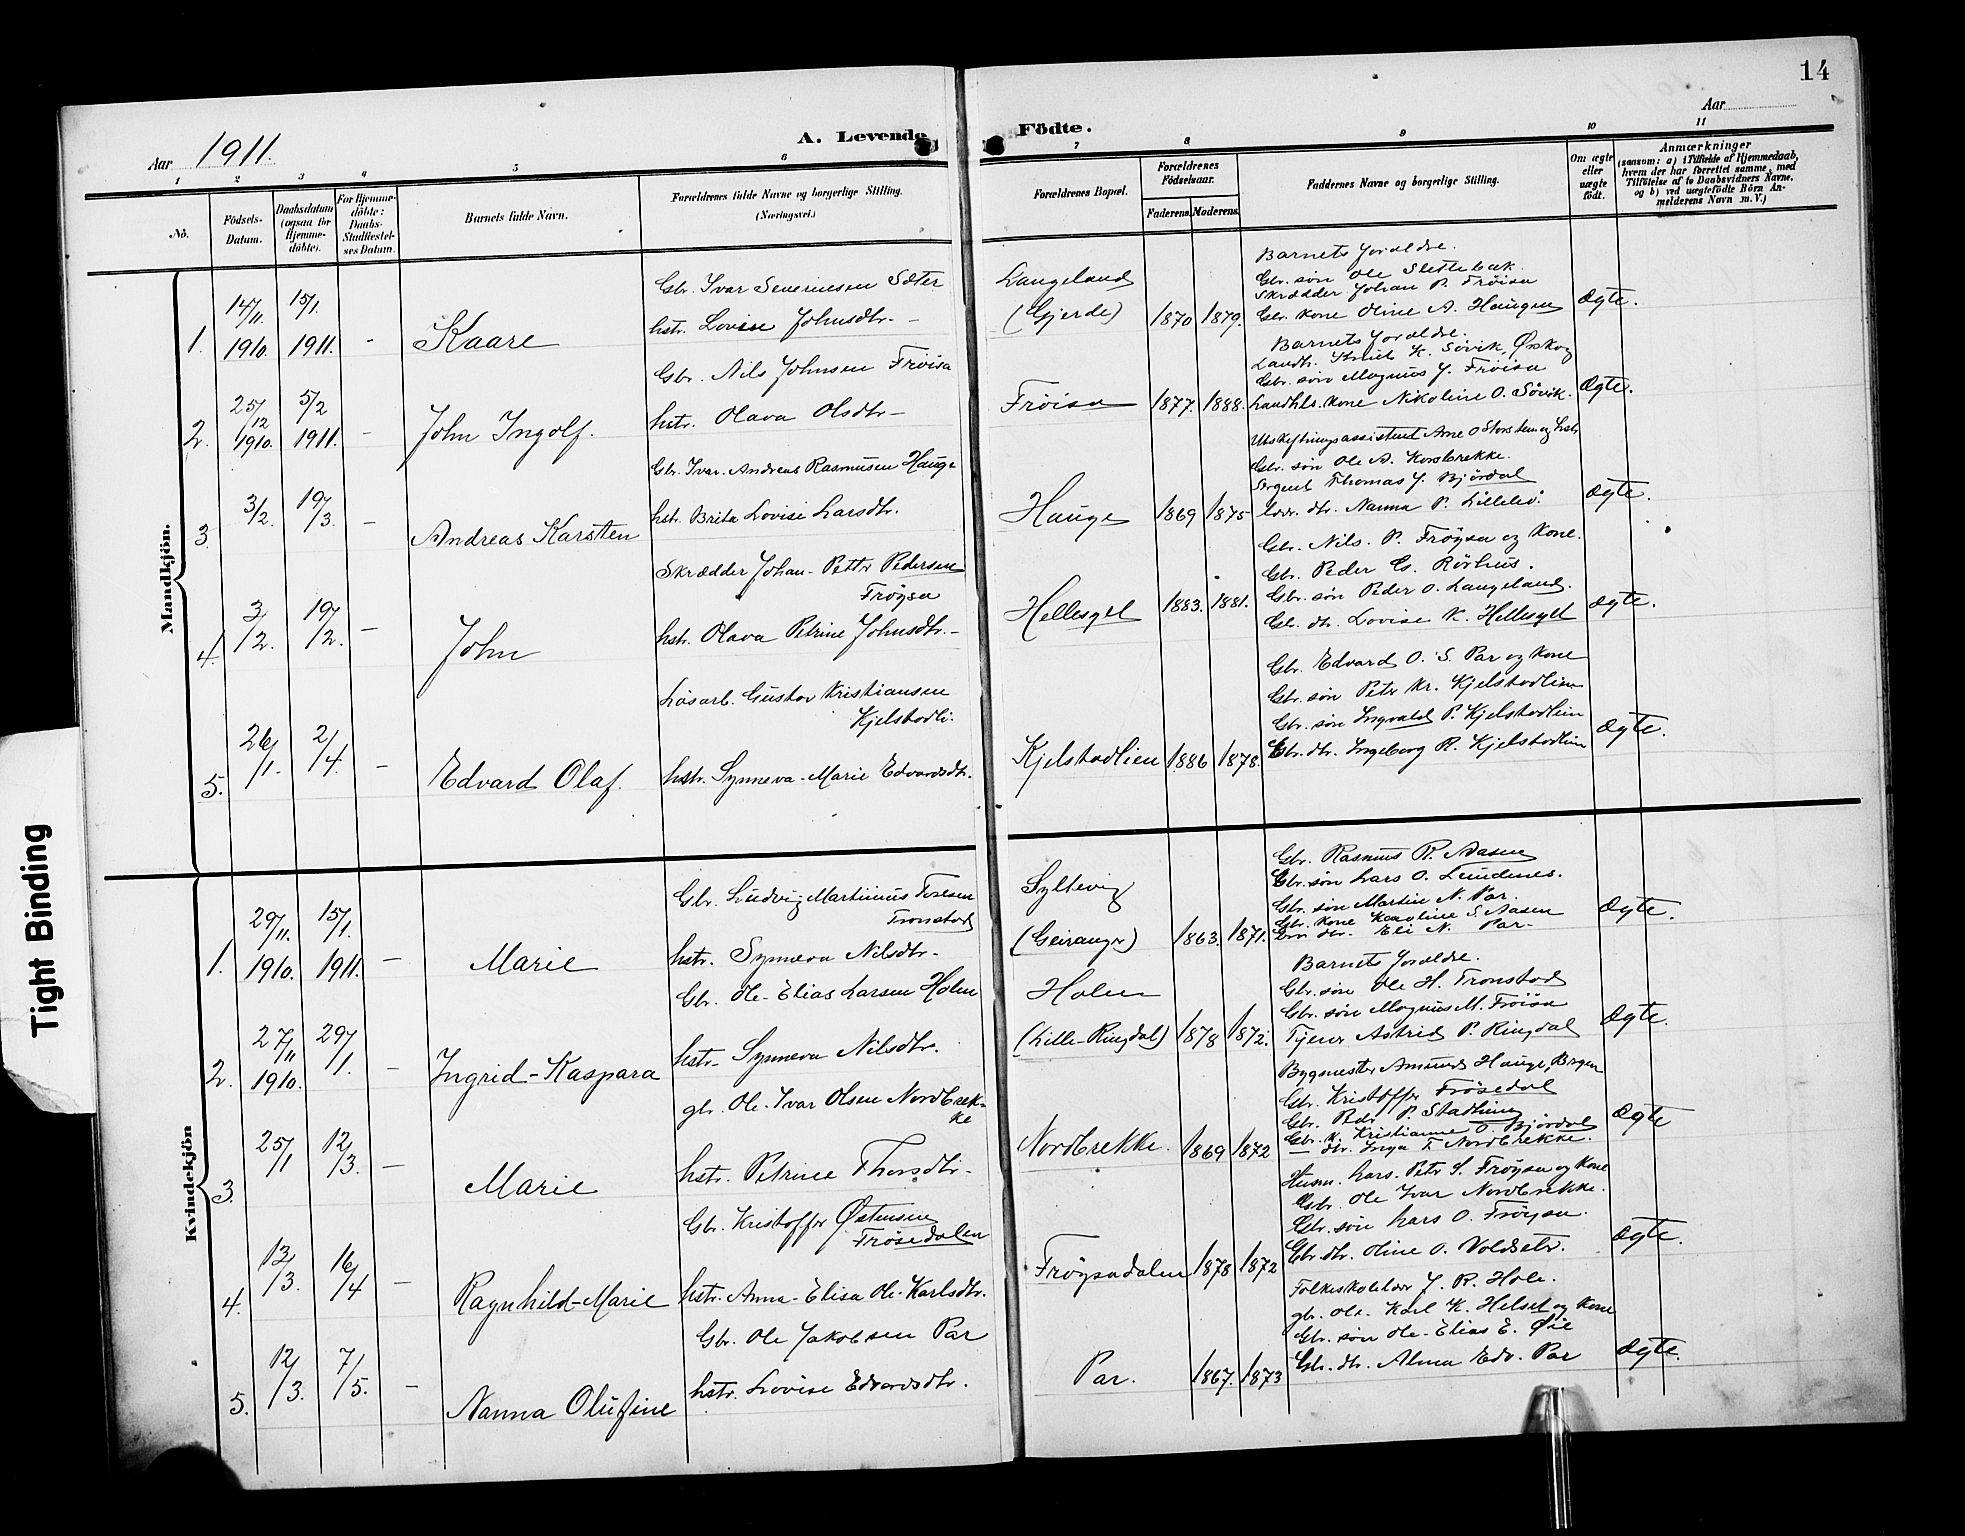 14
Aar 1911.
A. Levende Födte.
Aar
1 2 3 4 5 6 7 8 9 10 11
No.
Födsels-Datum.
Daabsdatum (ogsaa for Hjemme-döbte).
For Hjemme-döbte: Daabs-Stadfæstel-ses Datum.
Barnets fulde Navn.
Forældrenes fulde Navne og borgerlige Stilling. (Næringsvei.)
Forældrenes Bopæl.
Forældrenes Födselsaar.
Faderens. Moderens.
Faddernes Navne og borgerlige Stilling.
Om ægte eller uægte födt.
Anmærkninger
(saasom: a) i Tilfælde af Hjemmedaab, hvem der har forrettet samme, med Tilföielse af to Daabsvidners Navne, og b) ved uægtefödte Börn An-melderens Navn m. V.)
Mandkjön.
1. 14/11. 1910. 15/1. 1911. - Kaare
Gbr. Ivar Severinsen Sæter
hstr. Lovise Johnsdtr. -
Langeland
(Gjerde) 1870 1879.
Barnets Forældre.
Gbr. søn Ole Slettebak.
Skrædder Johan P. Frøisa
Gbr. kone Oline A. Haugen
Ægte.
2. 25/12 1910. 5/2 1911. - John Ingolf.
Gbr. Nils Johnsen Frøisa
hstr. Olava Olsdtr -
Frøisa 1877. 1888.
Barnets Forældre.
Landh. Knut K. Søvik, Ørskog
Gbr. søn Magnus J. Frøisa
Landhls. kone Nikoline O. Søvik.
Ægte.
3. 3/2. 19/3. - Andreas Karsten
Gbr. Ivar. Andreas Rasmusen Hauge
hstr. Brita Lovise Larsdtr.
Hauge 1869 1875
Utskiftningsassistent Arne O Storstein og hstr
Gbr. søn Ole A. Korsbrekke.
Sergent Thomas J. Bjørdal
dtr. Nanna P. Lillebø.
Ægte.
4. 3/2. 19/2. - John
Skrædder Johan- Petter Pedersen
Frøysa
hstr. Olava Petrine Johnsdtr. -
Hellesylt 1883. 1881.
Gbr. Nils. P. Frøysa og Kone.
Gbr. Peder G. Rørhus.
Gbr. søn Peder O. Langeland.
Gbr. dtr. Lovise K. Hellesylt
Ægte.
5. 26/1. 2/4. - Edvard Olaf.
Løsarb. Gustav Kristiansen
Kjelstadli.
hstr. Synneva- Marie Edvardsdtr.
Kjelstadlien 1886 1878.
Gbr. Edvard O. S. Par og Kone
Gbr. søn Petr Kr. Kjelstadlien
Gbr. søn Ingvald P. Kjelstadlien
Gbr. dtr. Ingeborg R. Kjelstadlien
Ægte.
Kvindekjön
1. 29/11. 1910. 15/1. 1911. - Marie
Gbr. Ludvig Martinus Toresen
Tronstad
hstr. Synneva Nilsdtr. -
Syltevig
(Geiranger) 1863. 1871.
Gbr. Rasmus R. Aasen
Gbr. søn Lars O. Lundenes.
Gbr. søn Martin N. Par.
Gbr. Kone Karoline S. Aasen
Gbr. dtr. Eli N. Par-
Ægte.
2. 27/11 1910. 29/1. - Ingrid-Kaspara
Gbr. Ole- Elias Larsen Holen
hstr- Synneva Nilsdtr.
Holen
(Lille-Ringdal) 1878 1872.
Barnets Forældre.
Gbr. søn Ole H. Tronstad
Gbr. søn Magnus M. Frøisa
Tjener Astrid P. Ringdal
Ægte.
3. 25/1 12/3. - Marie
gbr. Ole- Ivar Olsen Nordbrek-
ke
hstr. Petrine Thorsdtr-
Nordbrekke. 1869 1872
Bygmester Amund Hauge, Bergen
Gbr. Kristoffer Frøsedal
Gbr. Peder P. Stadheim
Gbr. K. Kristianne O. Bjørdal
- dtr. Inga T. Nordbrekke.
Ægte
4. 13/3. 16/4 - Ragnhild-Marie
Gbr. Kristoffer Østensen
Frøsedalen
hstr. Anna- Elisa Ole-Karlsdtr.
Frøysadalen 1878 1872
Husm. Lars. Petr S. Frøysa og Kone
Gbr. Ole Ivar Nordbrekke.
Gbr. søn Lars O. Frøysa.
Gbr. dtr. Oline O. Voldsetr.
Ægte.
5. 12/3. 7/5. - Nanna Olufine
Gbr. Ole Jakobsen Par
hstr. Lovise Edvardsdtr.
Par. 1867. 1873
Folkeskolelær J. R. Hole.
gbr. Ole- Karl K. Helset og Kone
Gbr. søn Ole- Elias E. Øie
Gbr. dtr. Alma Edv. Par
Ægte.
Tight Binding